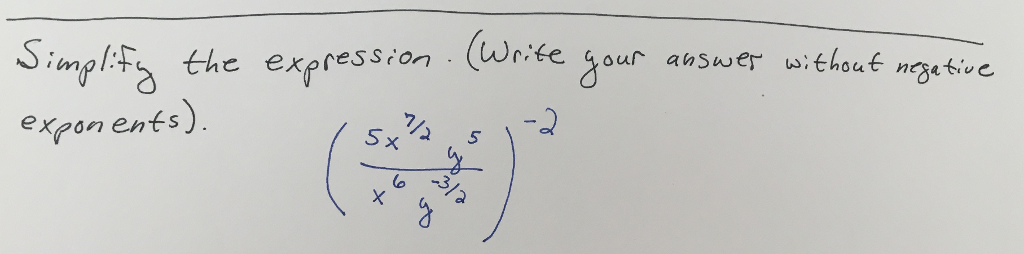 Simplify the expression. (Write your answer without negative
exponents).
(5x^7/2 y^5 / x^6 y^-3/2)^-2